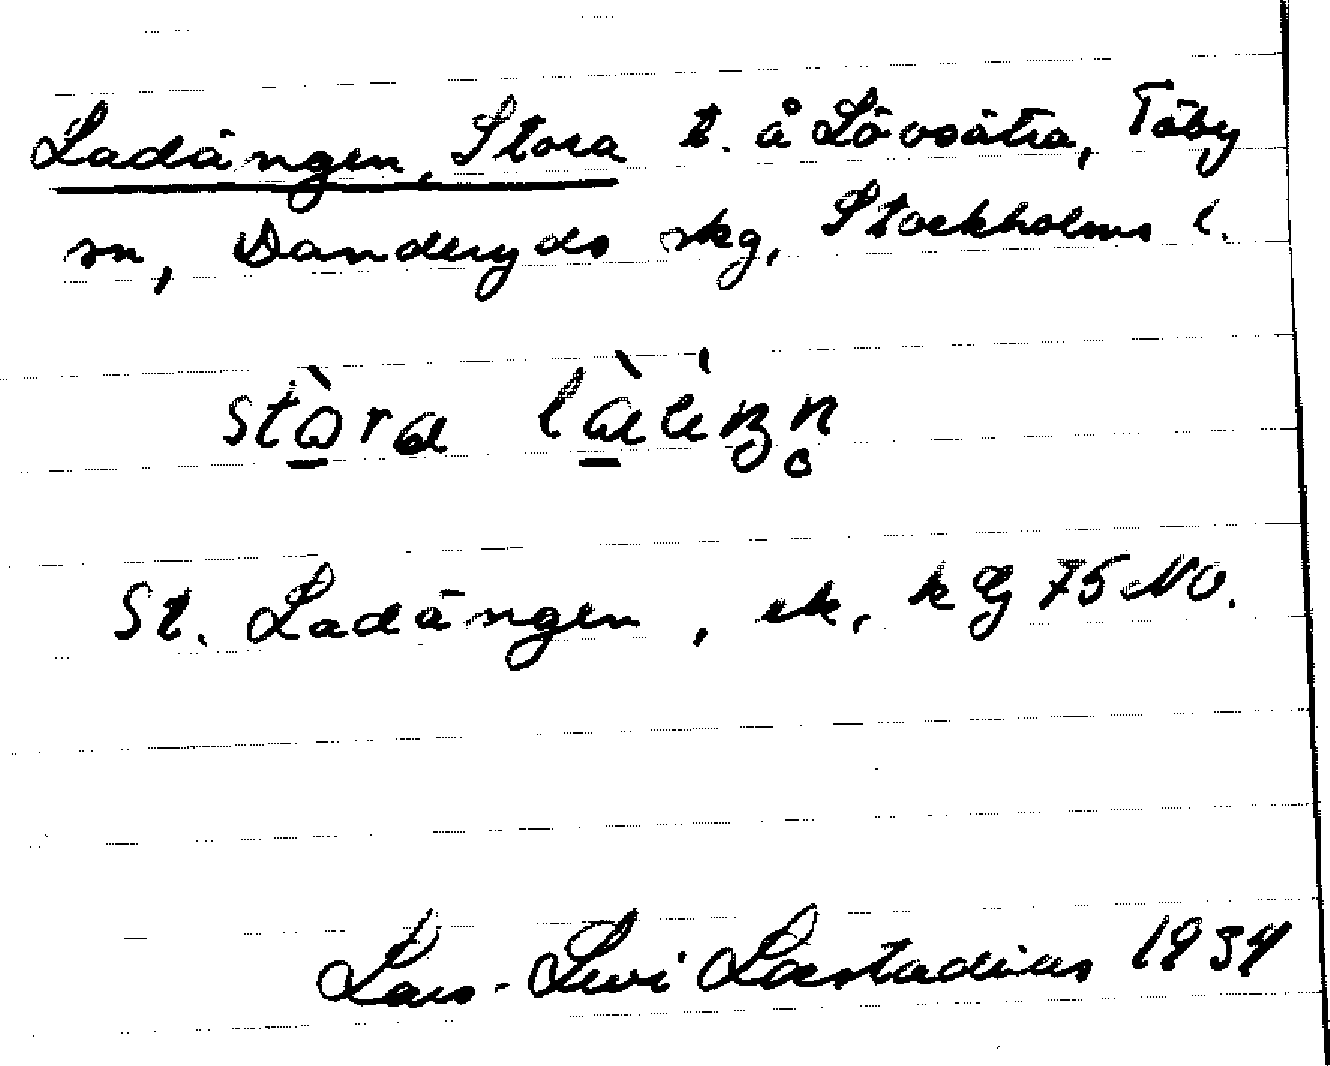 Ladängen, Stora t. å Lövsätra, Täby
sn, Danderyds skg, Stockholms l.
stòra
St. Ladängen, ek, kg 75 NO.
Lars-Levi Læstadius 1934